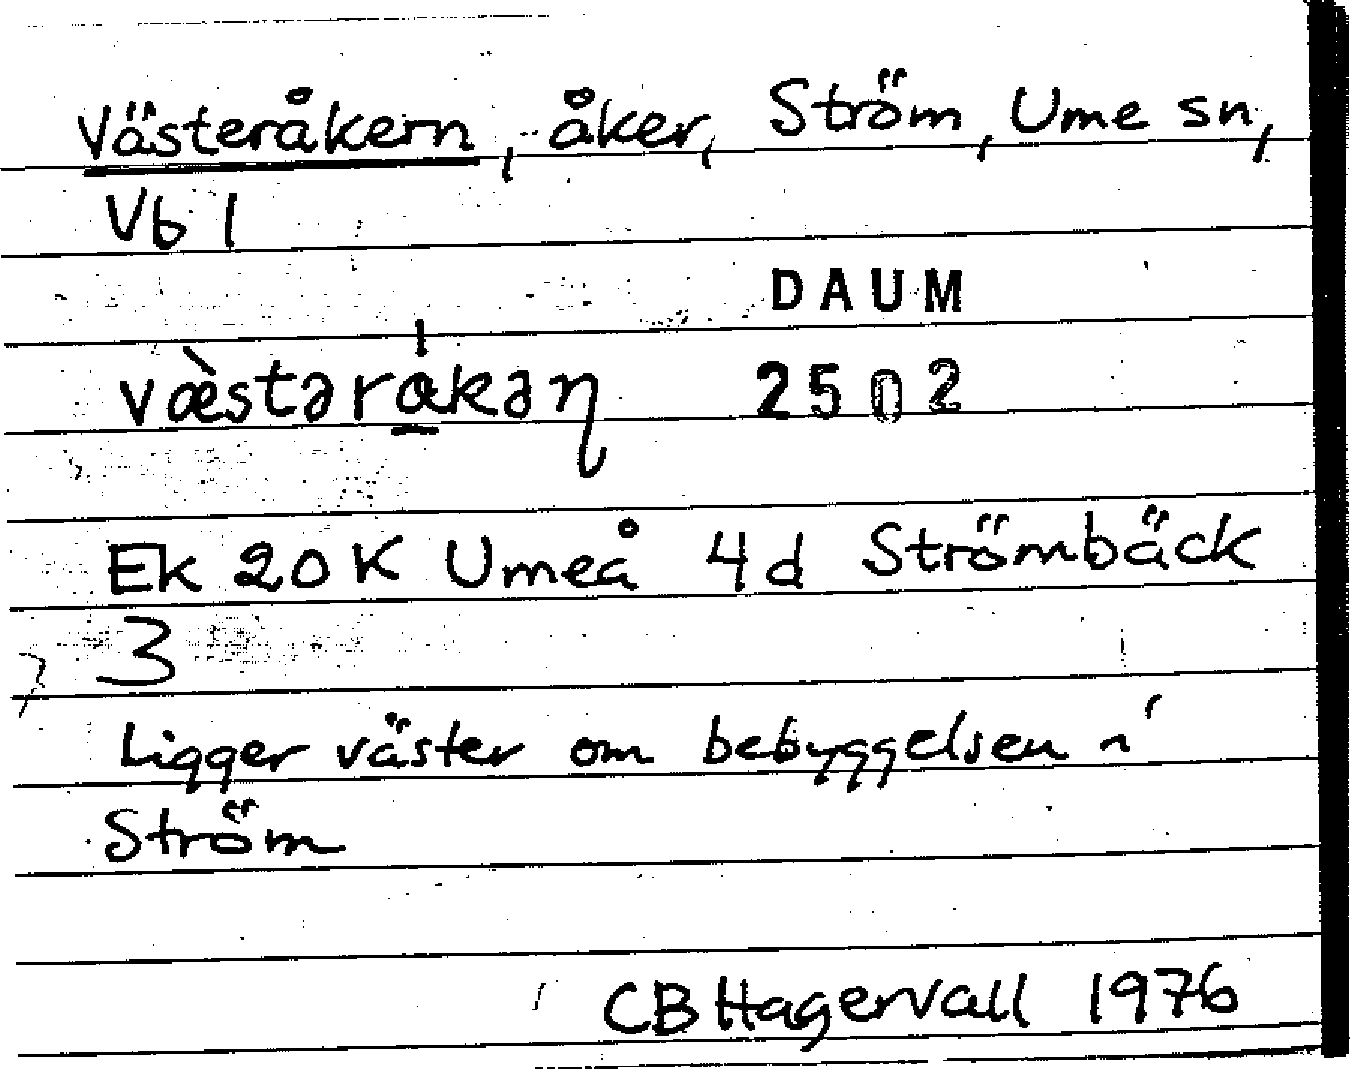 Västeråkern, åker, Ström, Ume sn,
Vb 1
DAUM
væ̀stərákəη 2502
Ek 20 K Umeå 4d Strömbäck
3
Ligger väster om bebyggelsen i
Ström
CB Hagervall 1976